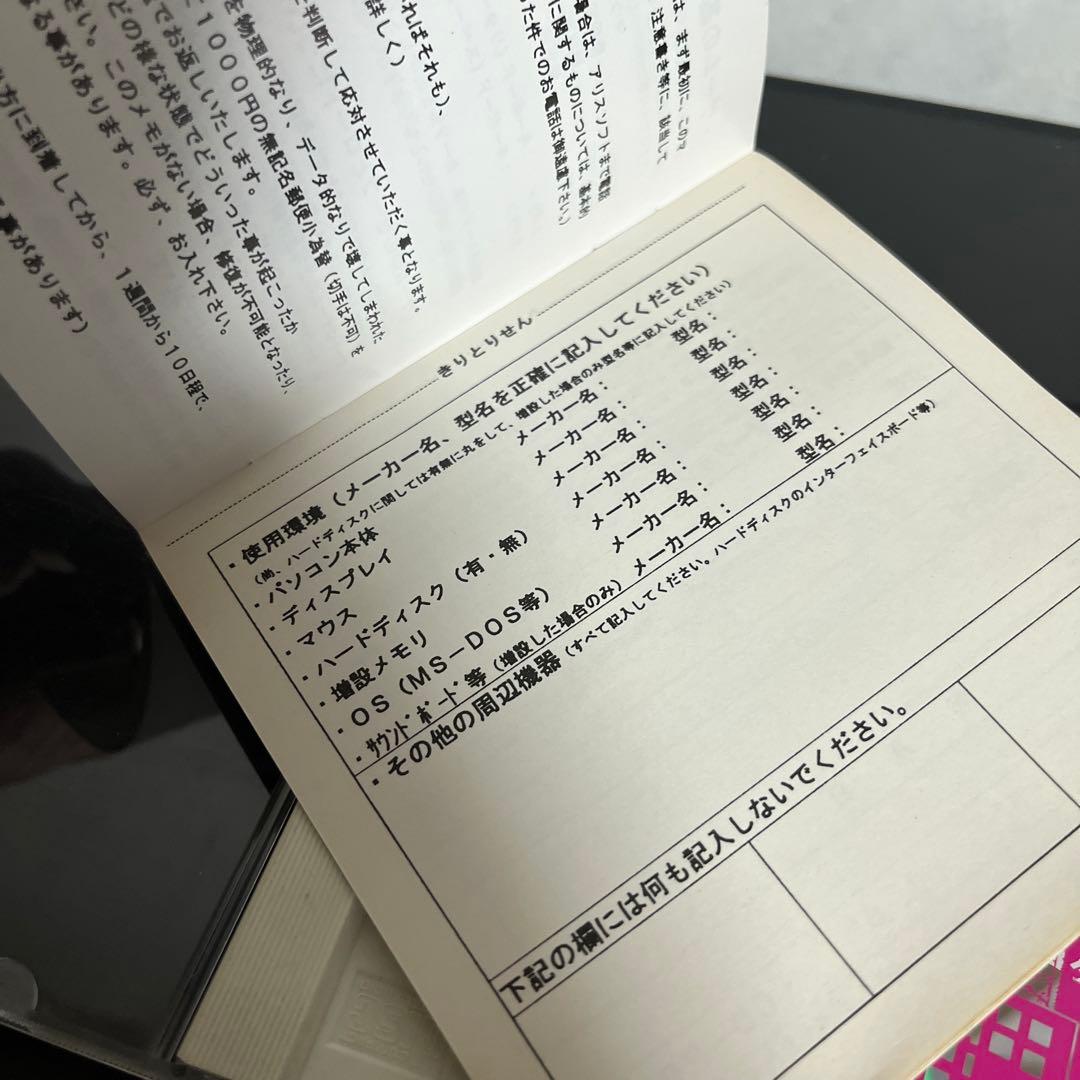 は、まず最初に、この
注意書き等に、該当して
場合は、アリスソフトまで電話
に関するものについては、基本的
た件でのお電話は御遠慮下さい。)
ればそれも)、
詳しく)
判断して応対させていただく事となります。
を物理的なり、データ的なりで壊してしまわれた
1000円の無記名郵便小為替(切手は不可)を
でお返しいたします。
どの様な状態でどういった事が起こったか
さい。このメモがない場合、修復が不可能となったり、
る事があります。必ず、お入れ下さい。
方に到着してから、1週間から10日程で、
事があります)
きりとりせん
・使用環境(メーカー名、型名を正確に記入してください)
(尚、ハードディスクに関しては有無に丸をして、増設した場合のみ型名等に記入してください)
・パソコン本体 メーカー名: 型名:
・ディスプレイ メーカー名: 型名:
・マウス メーカー名: 型名:
・ハードディスク(有・無) メーカー名: 型名:
・増設メモリ メーカー名: 型名:
・OS(MS-DOS等) メーカー名: 型名:
・サウンドボード等(増設した場合のみ) メーカー名: 型名:
・その他の周辺機器(すべて記入してください。ハードディスクのインターフェイスボード等)
下記の欄には何も記入しないでください。